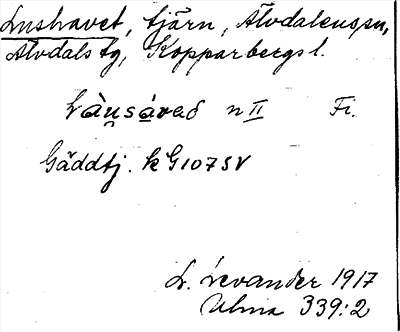 Lushavet, tjärn, Älvdalens sn,
Älvdals tg, Kopparbergs l.
Làu̯sávað n II Fi.
Gäddtj. k G107 SV
L. Levander 1917
Ulma 339:2